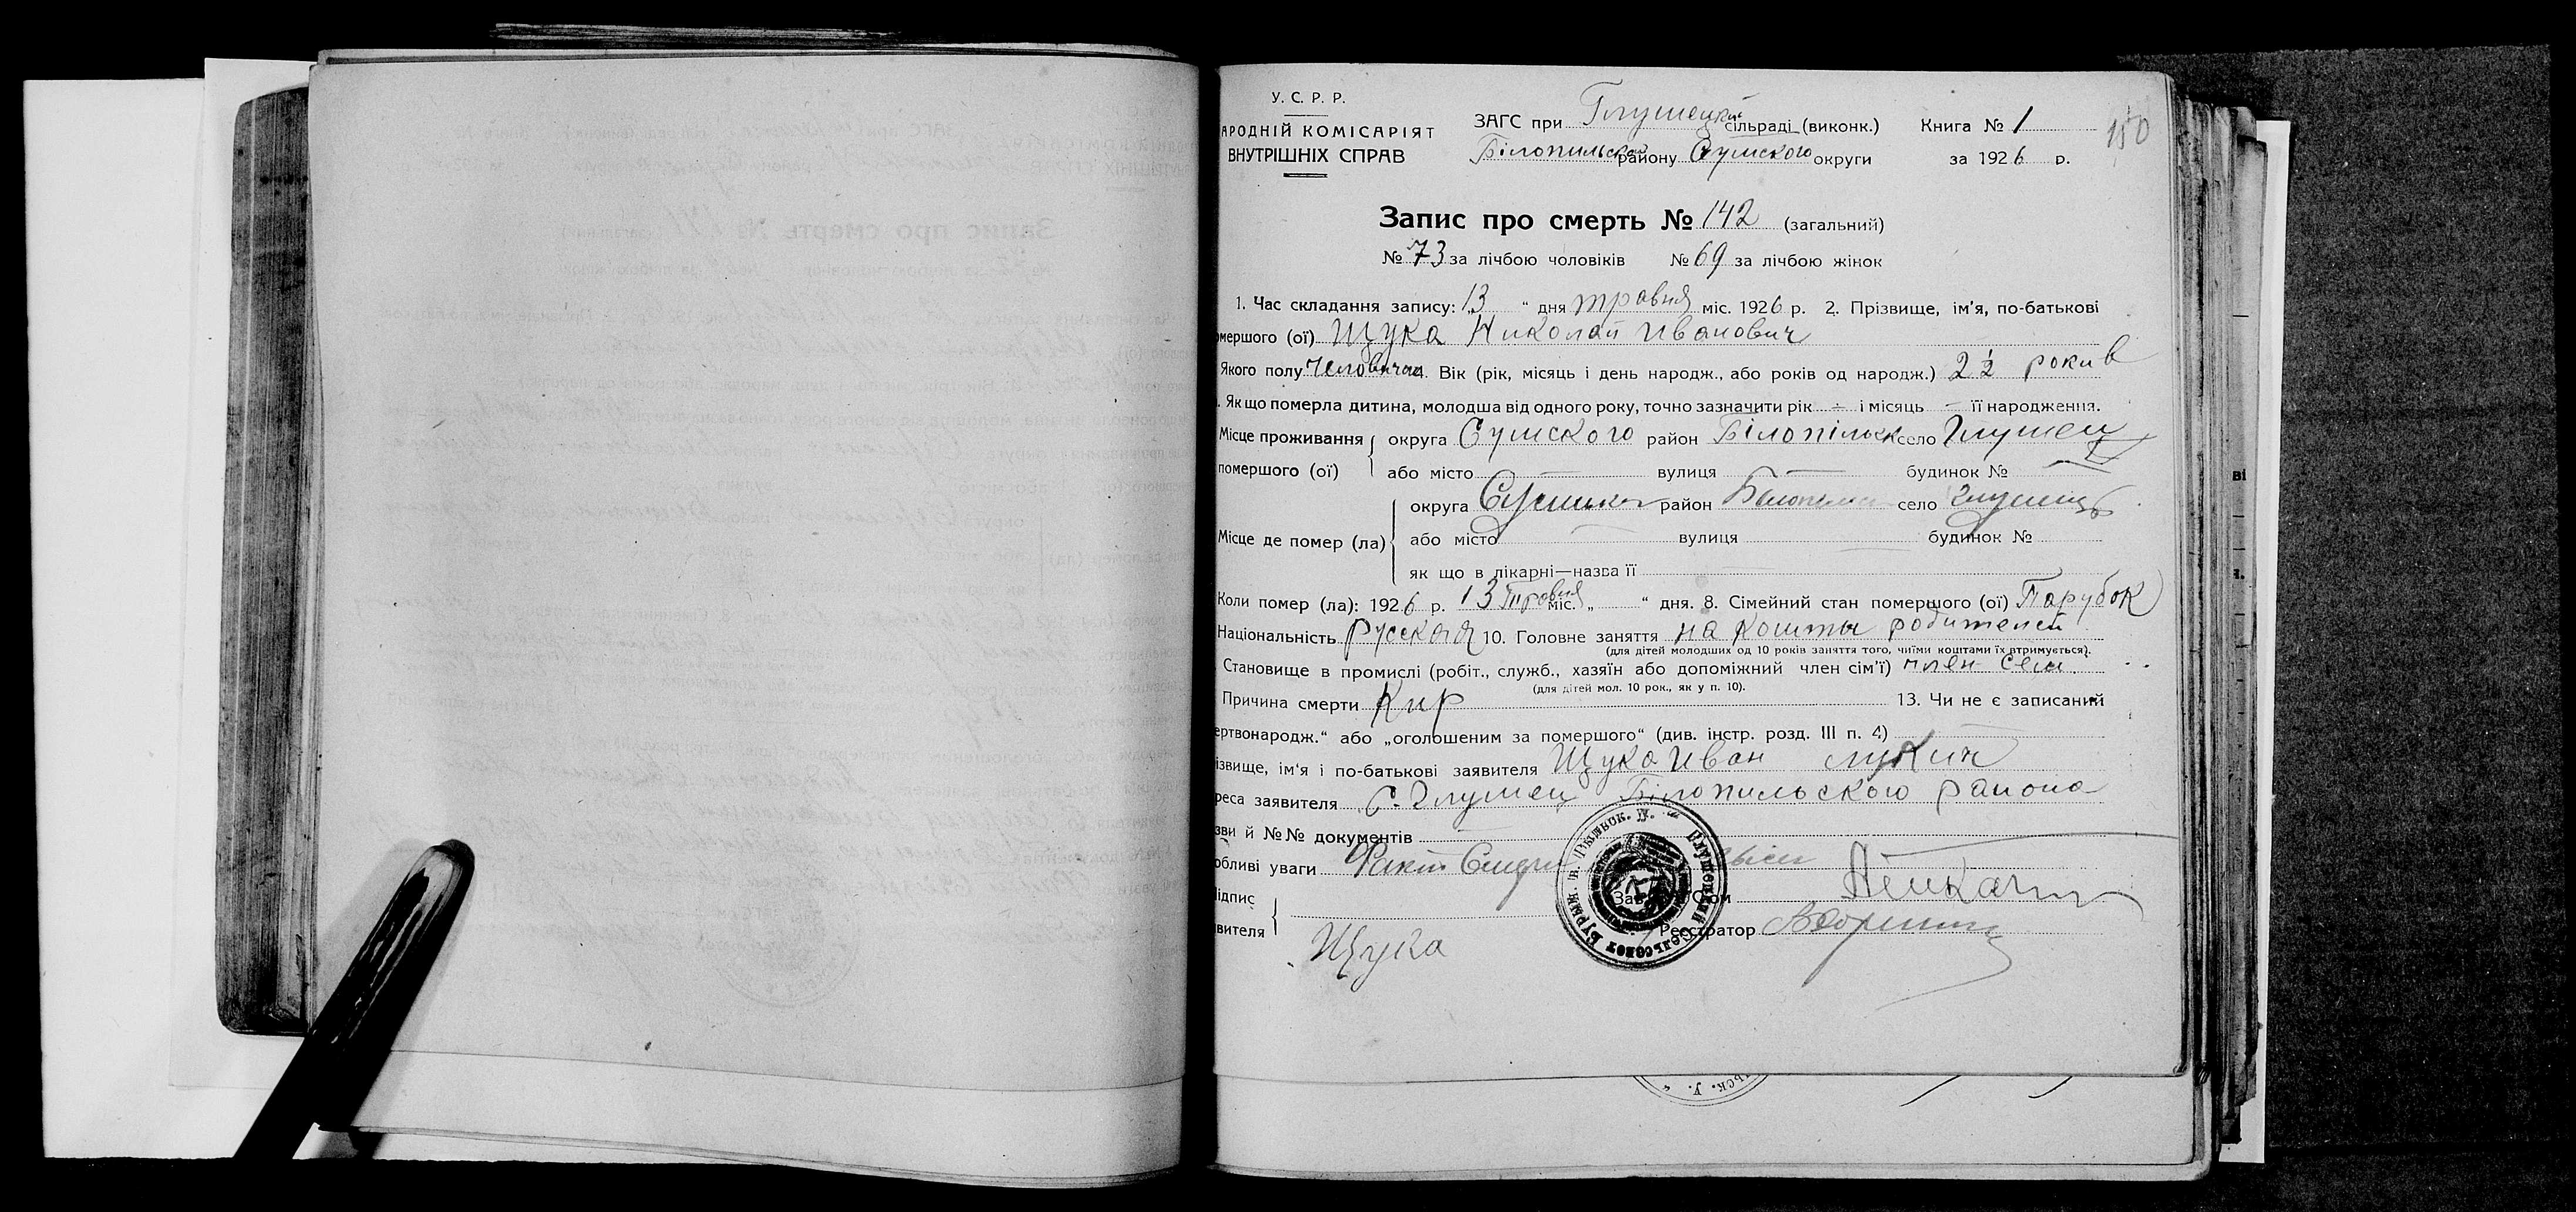 У. С. Р. Р.
АРОДНІЙ КОМІСАРІЯТ
ВНУТРІШНІХ СПРАВ
ЗАГС при Глушецкий сільраді (виконк.) Книга № 1
150
Білопильской району Сумского округи за 1926 р.
Запис про смерть № 142 (загальний)
№ 73 за лічбою чоловіків № 69 за лічбою жінок
1. Час складання запису: 13 " дня травня міс. 1926 р. 2. Прізвище, ім'я, по-батькові
мершого (ої) Щука Николай Иванович
Якого полу Вік (рік, місяць і день народж., або років од народж.) 2 1/2 рокив
. Якщо померла дитина, молодша від одного року, точно зазначити рік — і місяць — її народження.
Місце проживання округа Сумского район Білопільск село Глушец
помершого (ої) або місто — вулиця — будинок № —
округа район село
Місце де помер (ла) або місто вулиця будинок №
як що в лікарні—назва її
Коли помер (ла): 1926 р. 13 травня міс. „ " дня. 8. Сімейний стан помершого (ої) Парубок
Національність русская 10. Головне заняття на кошты родителей
(для дітей молодших од 10 років заняття того, чиїми коштами їх втримується).
Становище в промислі (робіт., служб., хазяїн або допоміжний член сім'ї) член семи
(для дітей мол. 10 рок., як у п. 10).
Причина смерти Кир 13. Чи не є записаний
ертвонародж." або „оголошеним за помершого" (див. інстр. розд. III п. 4)
ізвище, ім'я і по-батькові заявителя Щука Иван Лукич
реса заявителя С. Глушец Білопильского района
зви й №№ документів
обливі уваги Факт
ідпис
Реєстратор
явителя
Щука
Глушецкий Сельсовет
ьск. У.